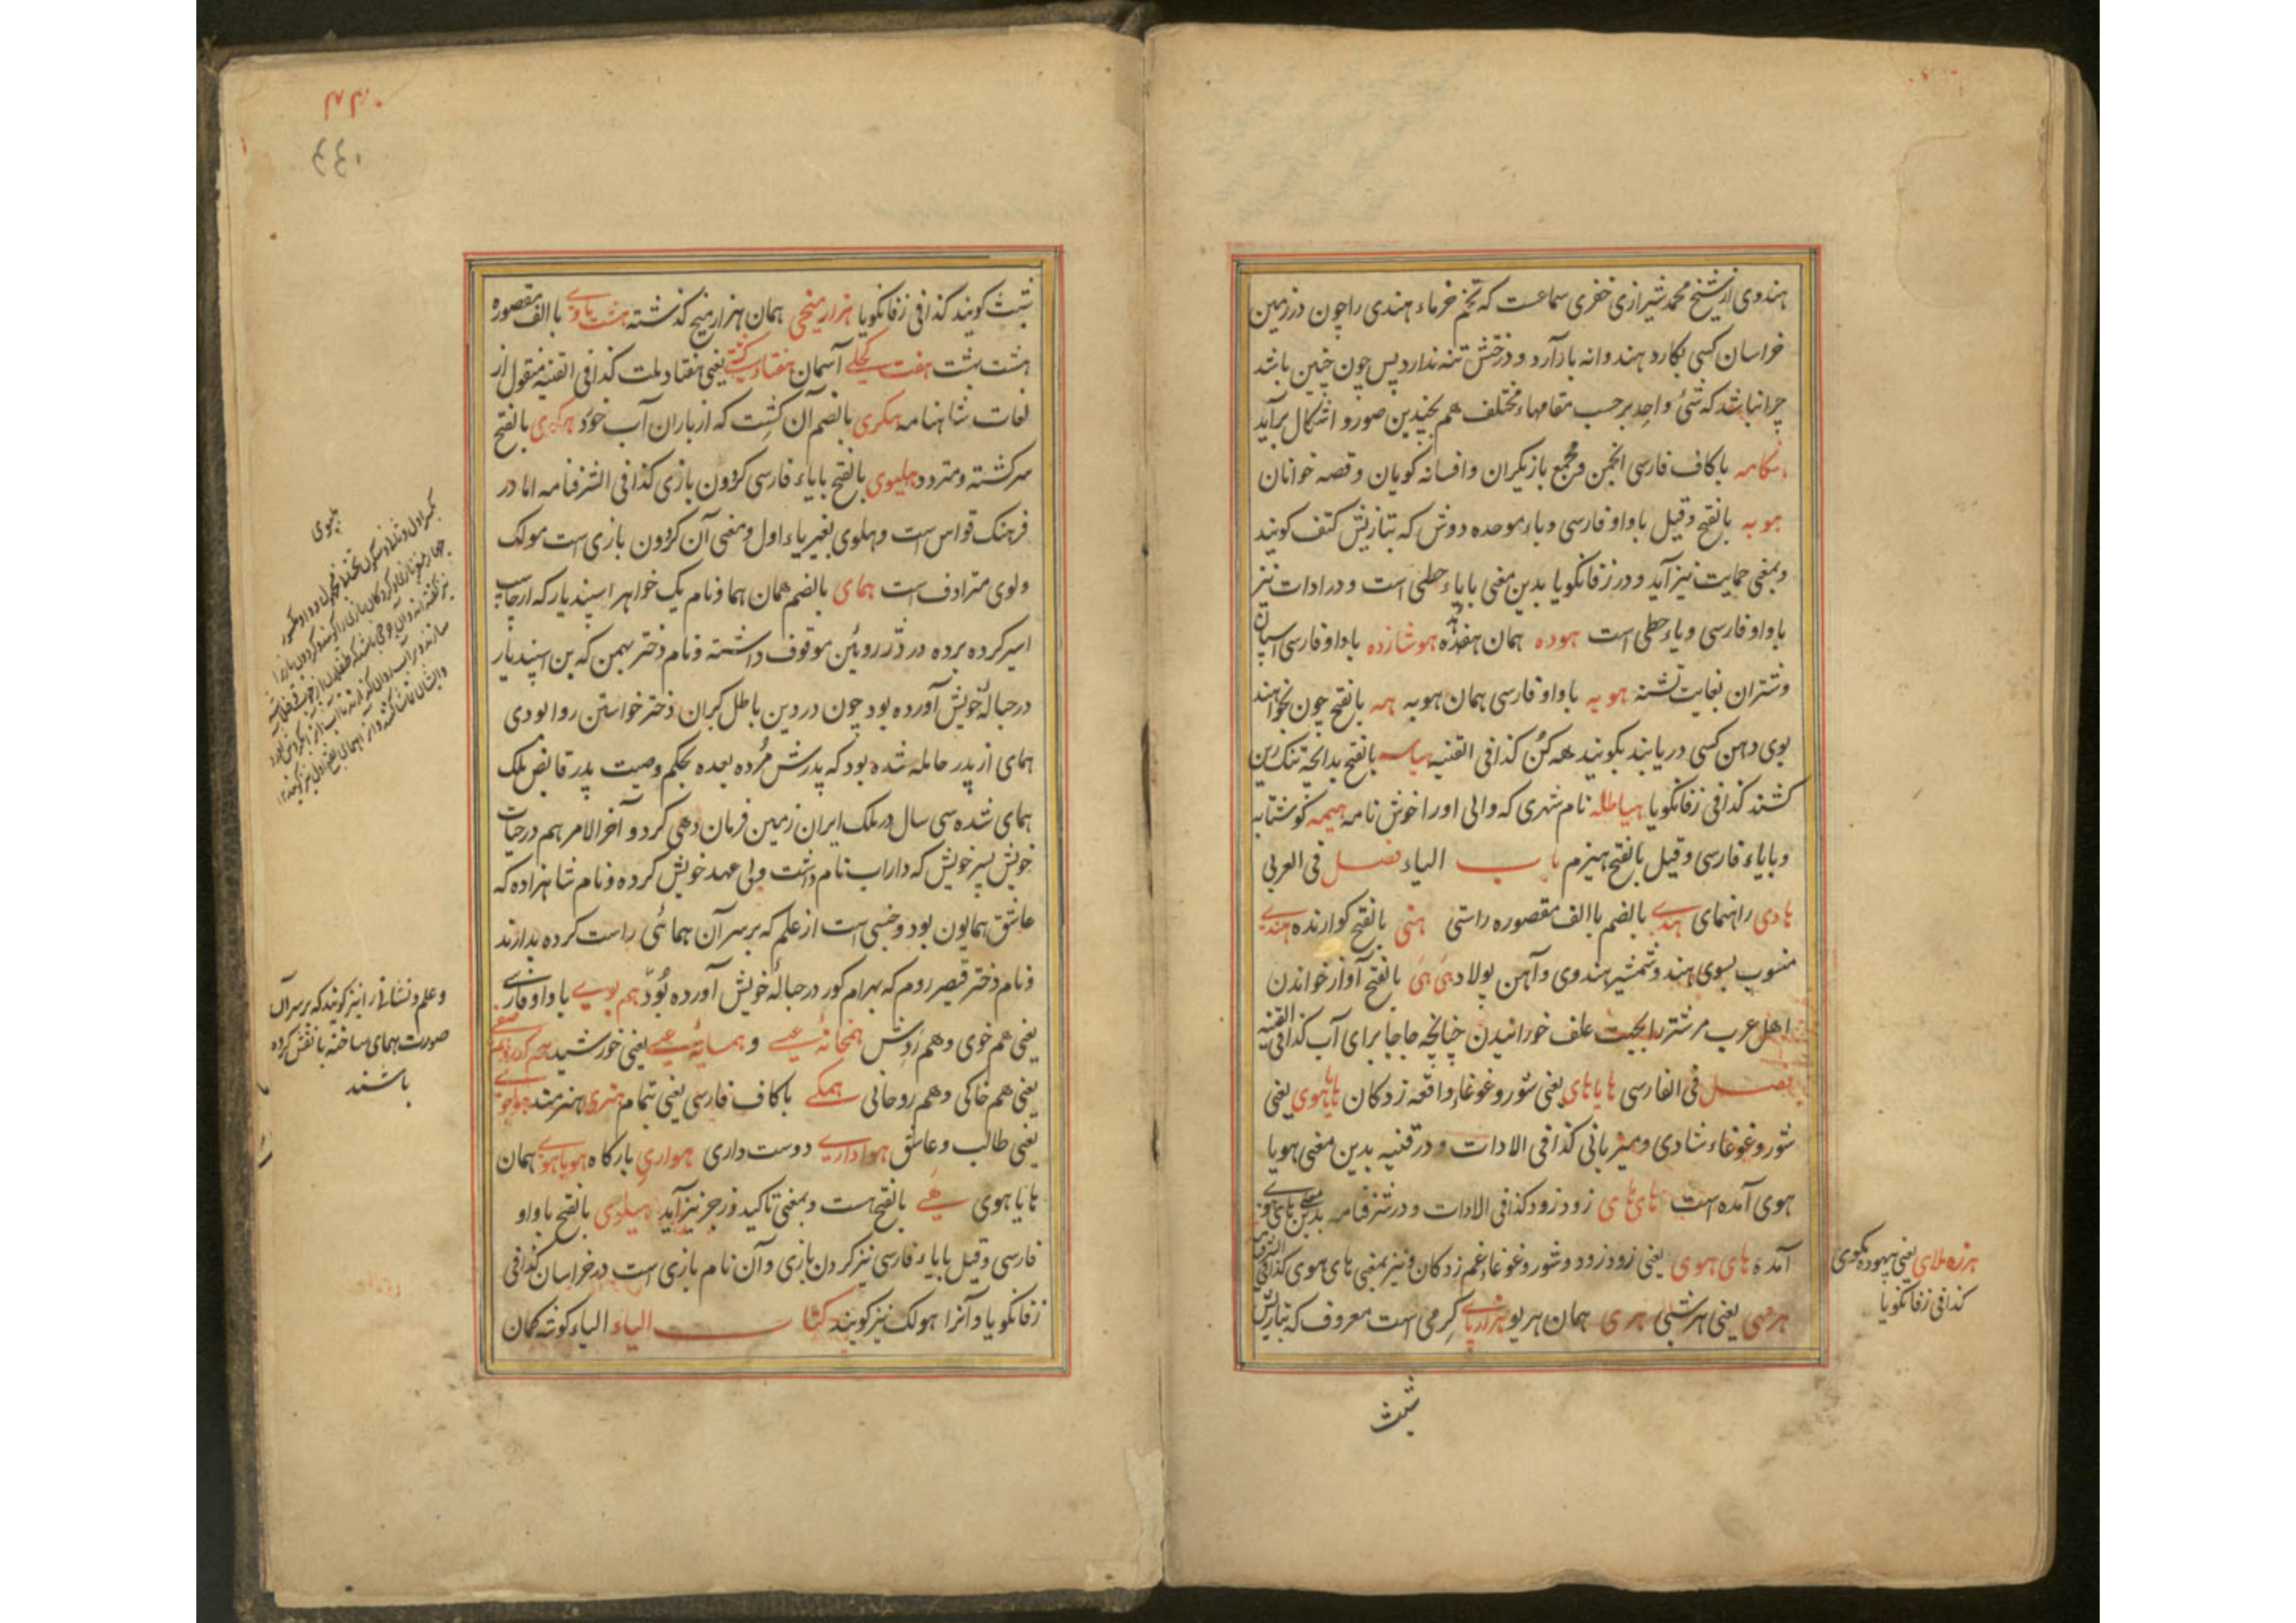 هندوی از شیخ محمد شیرازی خفری سماعست که تخم خرماء هندی را چون در زمین
خراسان کسی بکارد هندوانه بار آرد و درختش تنه ندارد پس چون چنین باشد
چرا نباشد که شئ واحد بر حسب مقامهاء مختلف هم بچندین صور و اشکال برآید
هنکامه با کاف فارسی انجمن و مجمع بازیکران و افسانه کویان و قصه خوانان
هوبه بالفتح و قیل با واو فارسی و باء موحده دوش که بتازیش کتف کویند
و بمعنی حمایت نیز آید و در زفانکویا بدین معنی بایاء حطی است و در ادات نیز
با واو فارسی و یاء حطی است هوده همان هفده هوشازده با واو فارسی اسپان
و شتران بغایت تشنه هویه با واو فارسی همان هوبه همه بالفتح چون نخواهند
بوی دهن کسی دریابند بکویند هه کن کذا فی القنیه بالفتح بدانچه تنک زین
کشند کذا فی زفانکویا هیاطله نام شهری که والی او را خوش نامه هیمه کوشتابه
و بایاء فارسی و قیل بالفتح هیزم باب الیاء فصل فی العربی
هادی راهنمای هدی بالضم با الف مقصوره راستی هنی بالفتح کوارنده هندی
منسوب بسوی هند و شمشیر هندوی و آهن پولاد هَی هَی بالفتح آواز خواندن
اهل عرب مر شتر را بجهت علف خورانیدن چنانچه جاجا برای آب کذا فی القنیه
فصل فی الفارسی هایاهای یعنی شور و غوغاء واقعه زدکان هایاهوی یعنی
شور و غوغاء شادی و میزبانی کذا فی الادات و در قنیه بدین معنی هویا
هوی آمده است های های زود زود کذا فی الادات و در شرفنامه بدین معنی های هوی
آمده های هوی یعنی زود زود و شور و غوغاء غم زدکان و نیز بمعنی های هوی کذا فی الشرفنامه
یعنی هر شبی هری همان هریو هزارپای کرمی است معروف که بتازیش
هرزه ملای یعنی بیهوده مکوی
کذا فی زفانکویا
شبث
۴۴۰
شبث کویند کذا فی زفانکویا هزارمیخی همان هزارمیخ کذشته هشت باوی با الف مقصوره
هشت بهشت هفت کحلی آسمان هفتاد کشتی یعنی هفتاد ملت کذا فی القنیه منقول از
لغات شاهنامه هکری بالضم آن کشت که از باران آب خورد بالفتح
سرکشته و متردد هلیوی بالفتح بایاء فارسی کردون بازی کذا فی الشرفنامه اما در
فرهنک قواس است و هلوی بغیر یاء اول و معنی آن کردون بازی است مولک
ولوی مترادف است همای بالضم همان هما و نام یک خواهر اسپندیار که ارجاسپ
اسیر کرده برده در دز رویین موقوف داشته و نام دختر بهمن که بن اسپندیار
در حبالهٔ خویش آورده بود چون در دین باطل کبران دختر خواستن روا بودی
همای از پدر حامله شده بود که پدرش مُرده بعده بحکم وصیت پدر قابض ملک
همای شده سی سال در ملک ایران زمین فرمان دهی کرد و آخر الامر هم در حیات
خویش پسر خویش که داراب نام داشت ولی عهد خویش کرده و نام شاهزاده که
عاشق همایون بود و جنسی است از علم که بر سر آن همائی راست کرده بدارند
و نام دختر قیصر روم که بهرام کور در حبالهٔ خویش آورده بُود هم بویی با واو فارسی
یعنی هم خوی و هم رَوِش همخانهٔ عیسی و همسایهٔ عیسی یعنی خورشید
یعنی هم خاکی و هم روحانی همکی با کاف فارسی یعنی تمام هنری هنرمند هواجوی
یعنی طالب و عاشق هواداری دوست داری هواری بارکاه هویاهوی همان
هایاهوی هَی بالفتح هست و بمعنی تاکید و زجر نیز آید هیلوی بالفتح با واو
فارسی و قیل بایاء فارسی نیز کردن بازی و آن نام بازی است در خراسان کذا فی
زفانکویا و آنرا هولک نیز کویند کتاب الیاء الیاء کوشه کمان
هلیوی
و علم و نشانی را نیز کویند که بر سر آن
صورت همای ساخته یا نقش کرده
باشند